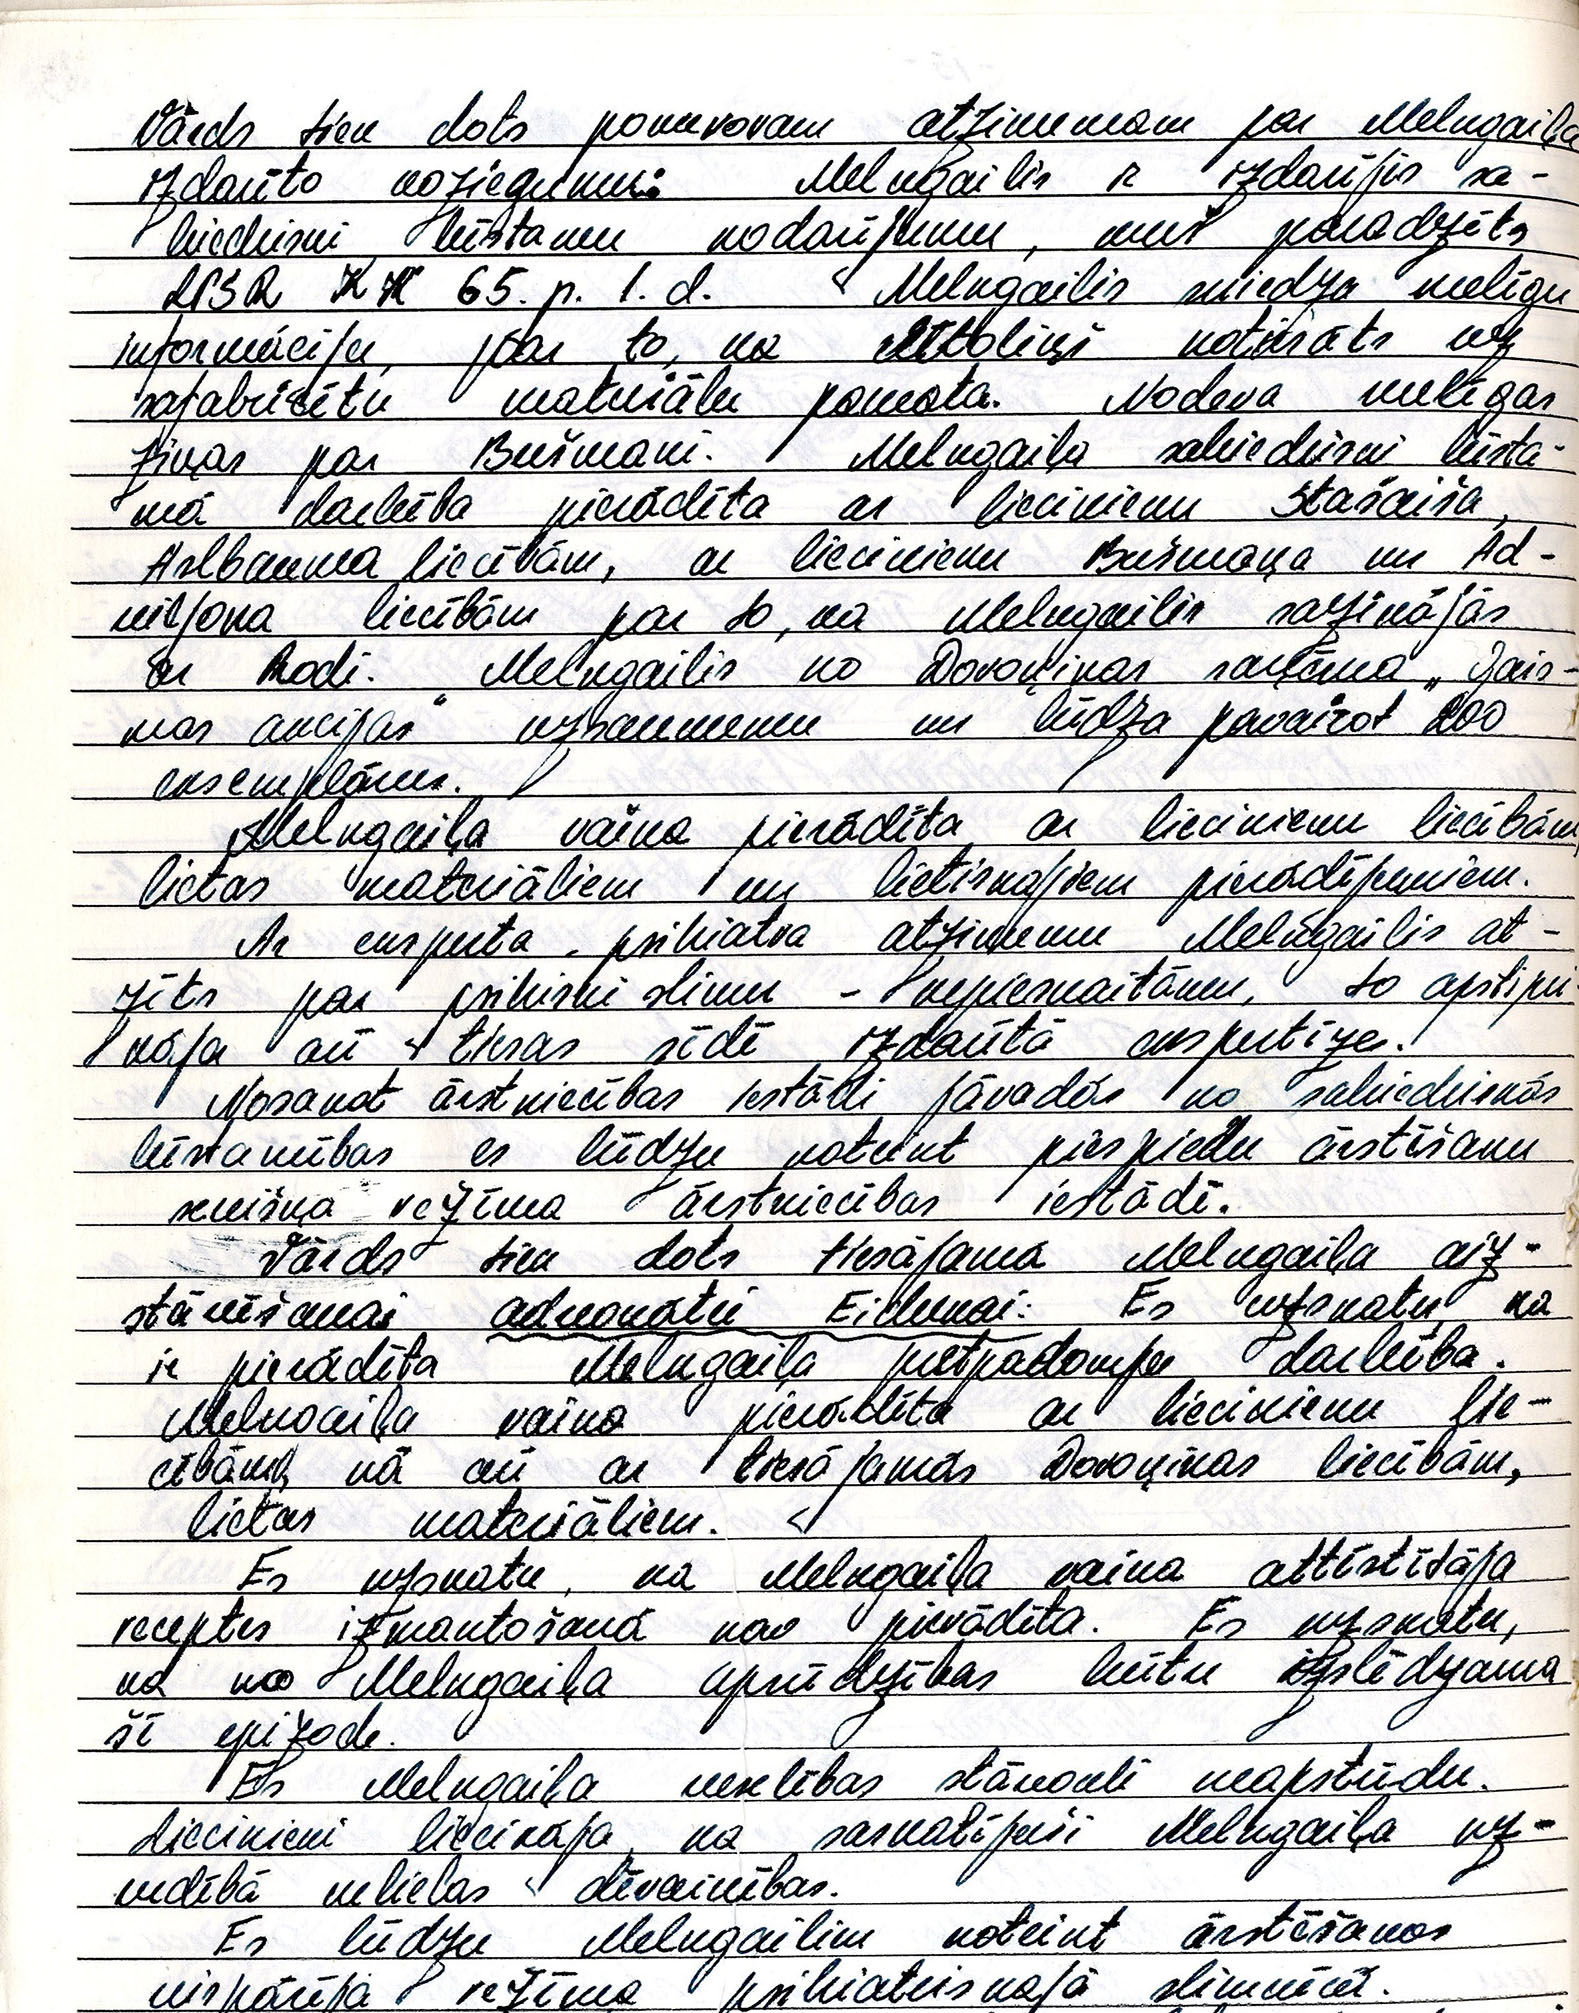 Vārds tiek dots prokuroram atzinumam par Melngaiļa
izdarīto noziegumu: Melngailis ir izdarījis sa-
biedriski bīstamu nodarījumu, kuŗš paredzēts
LPSR KK 65. p. 1. d. Melngailis sniedza melīgu
informāciju, par to, ka notiesāts uz
safabricētu materiālu pamata. Nodeva melīgas
ziņas par Bušmani. Melngaiļa sabiedriski bīsta-
mā darbība pierādīta ar liecinieku
liecībām, ar liecinieku Bušmaņa un Ad-
liecībām par to, ka Melngailis sazinājās
ar Rodi. Melngailis no Doroņinas saņēma „Gais-
mas akcijas" uzsaukumu un lūdza pavairot 200
eksemplārus.
Melngaiļa vaina pierādīta ar liecinieku liecībām,
lietas materiāliem un lietiskajiem pierādījumiem.
Ar eksperta - psihiatra atzinumu Melngailis at-
zīts par psihiski slimu - nepieskaitāmu, to apstipri-
nāja arī tiesas sēdē izdarītā ekspertīze.
Nosakot ārstniecības iestādi jāvadās no sabiedriskās
bīstamības es lūdzu noteikt piespiedu ārstēšanu
režīma ārstniecības iestādē.
Vārds tiek dots tiesājamā Melngaiļa aiz-
stāvēšanai advokātei Eidukai: Es uzskatu, ka
ir pierādīta Melngaiļa pretpadomju darbība.
Melngaiļa vaina pierādīta ar liecinieku lie-
cībām, kā arī ar tiesājamās Doroņinas liecībām,
lietas materiāliem.
Es uzskatu, ka Melngaiļa vaina attīstītāja
receptes izmantošanā nav pierādīta. Es uzskatu,
ka no Melngaiļa apsūdzības būtu izslēdzama
šī epizode.
Es Melngaiļa veselības stāvokli neapstrīdu.
Liecinieki liecināja, ka saskatījuši Melngaiļa uz-
vedībā nelielas dīvainības.
Es lūdzu Melngailim noteikt ārstēšanos
vispārēja režīma psihiatriskajā slimnīcā.